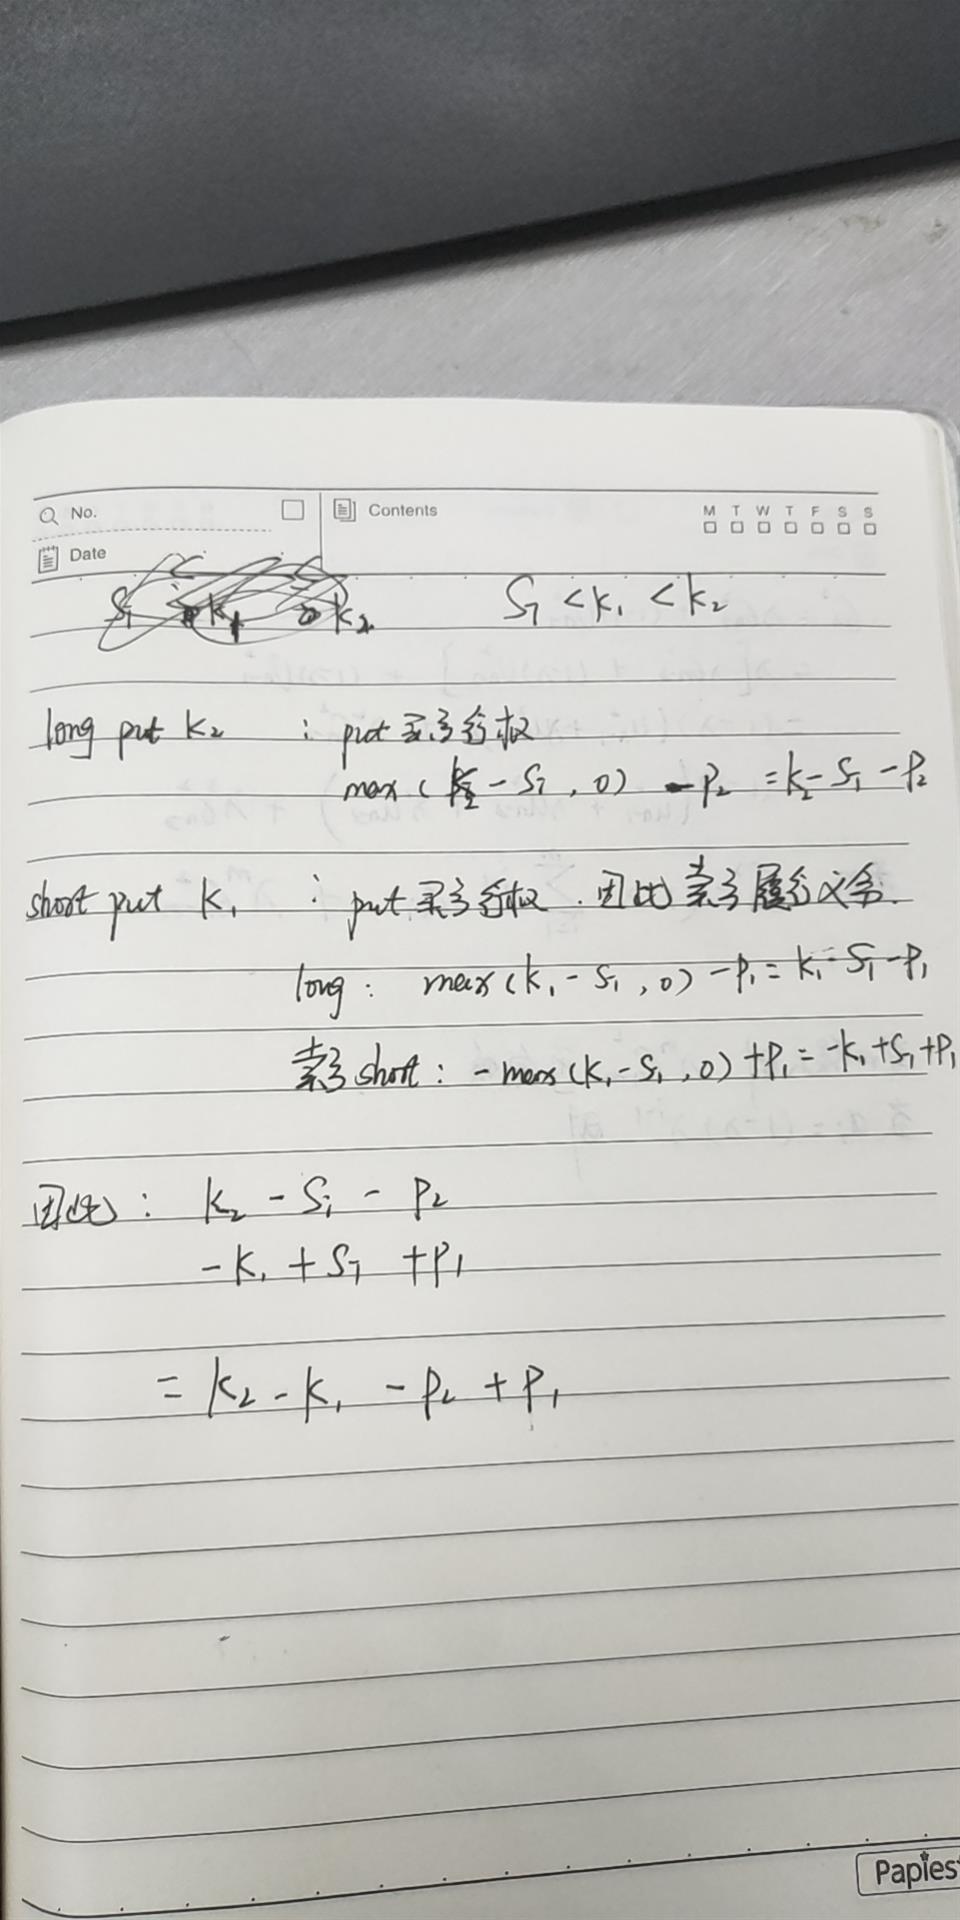 No.
Contents
M T W T F S S
Date
S₁ < K₁ < K₂
long put K₂ : put 买方行权
max ( K₂ - S₁ , 0 ) - P₂ = K₂ - S₁ - P₂
short put K₁ : put 买方行权 . 因此卖方履行义务.
long : max ( K₁ - S₁ , 0 ) - P₁ = K₁ - S₁ - P₁
卖方 short : - max ( K₁ - S₁ , 0 ) + P₁ = - K₁ + S₁ + P₁
因此 : K₂ - S₁ - P₂
- K₁ + S₁ + P₁
= K₂ - K₁ - P₂ + P₁